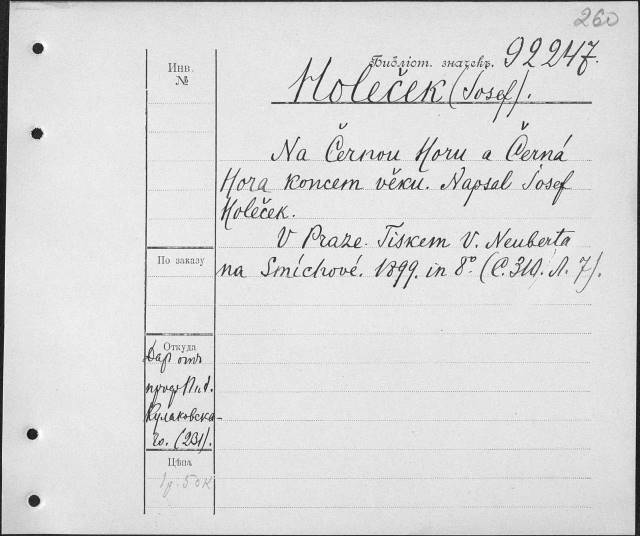 260
Библіот. значекъ. 92247.
Инв.
№
Holeček (Josef).
Na Černou Horu a Černá
Hora koncem věku. Napsal Josef
Holeček.
V Praze. Tiskem V. Neuberta
По заказу
na Smíchově. 1899. in 8°. (C. 310. Л. 7).
Откуда
Даръ отъ
проф. Пл. А.
Кулаковска-
го. (231).
Цѣна
1р. 50к